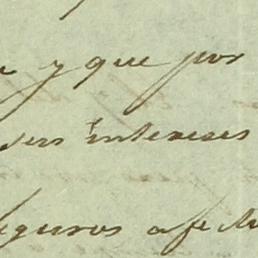 y que por
sus intereses
seguros afectu